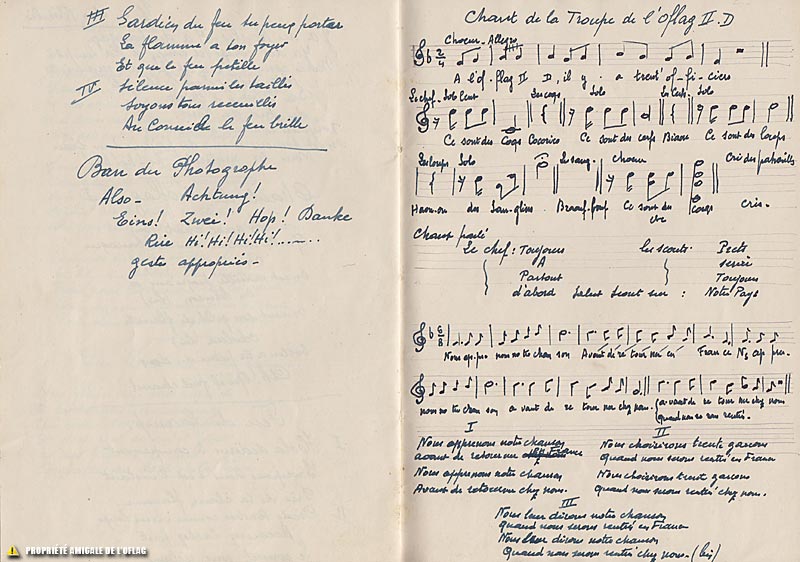 III Gardien du feu tu peux porter
La flamme à ton foyer
Et que le feu petille
IV Silence parmi les taillis
Soyons tous recueillis
Au Conseil le feu brille
Ban du Photographe
Also - Achtung!
Eins! Zwei! Hop! Danke
Rire Hi! Hi! Hi! Hi! ......
geste approprié -
Chant de la Troupe de l'Oflag II.D
Choeur - Allegro
2/4
A l'of-flag II D, il y a trent' of-fi-ciers
Le chef - Solo Lent Les coqs Solo Les cerfs Solo
Ce sont des Coqs Cocorico Ce sont des cerfs Ce sont des Loups
Les loups Solo Le sang. Choeur Cri des patrouilles
des San-gliers Ce sont des Coqs Cris-
Chant parlé
Le chef: Toujours Les scouts: Prêts
A servir
Partout Toujours
d'abord Salut Scout sur: Notre Pays
6/8
Nous appre nons notre chan son Avant de re tour ner en Fran ce Ns ap pre-
nons notre chan son a vant de re tour ner chez nous. {a-vant de re tour ner chez nous
quand nous se rons rentrés.
I
Nous apprenons notre chanson
avant de retourner France
Nous apprenons notre chanson
Avant de retourner chez nous.
II
Nous choisirons trente garçons
Quand nous serons rentrés en France
Nous choisirons trente garçons
Quand nous serons rentrés chez nous.
III
Nous leur dirons notre chanson
Quand nous serons rentrés en France
Nous leur dirons notre chanson
Quand nous serons rentrés chez nous - (bis)
PROPRIÉTÉ AMIGALE DE L'OFLAG